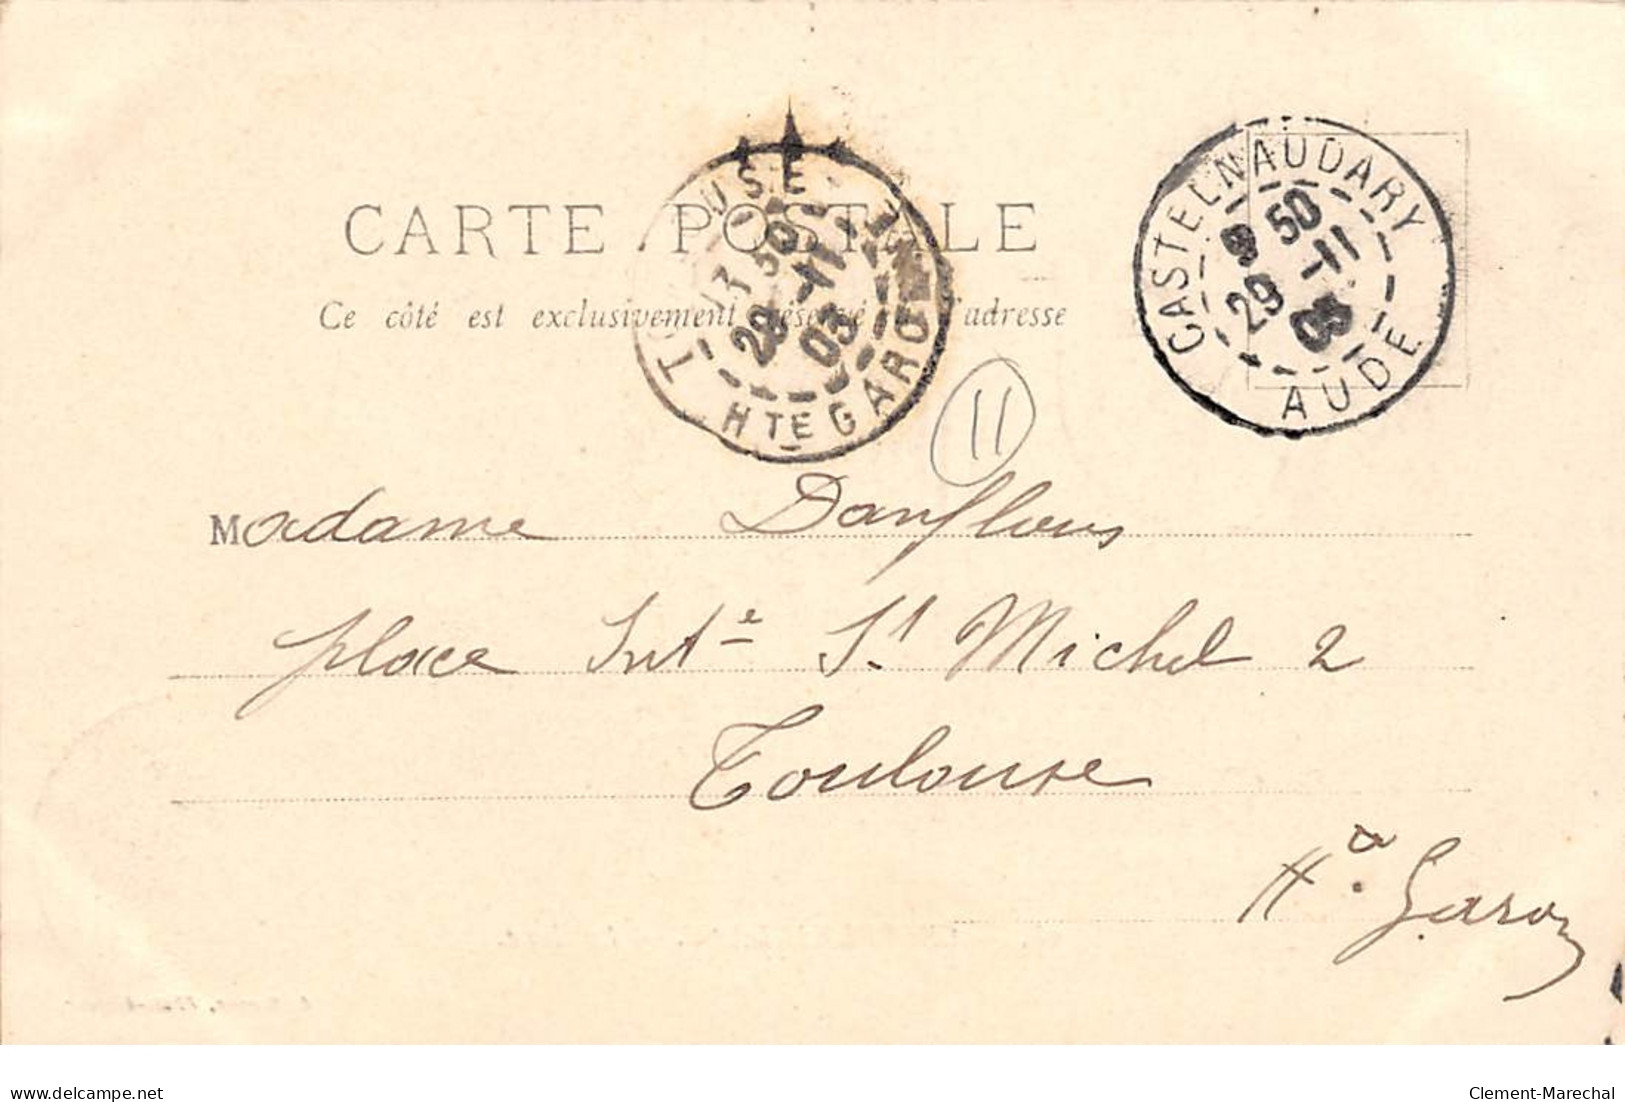 CARTE POSTALE
Ce côté est exclusivement réservé à l'adresse
TOULOUSE
13 50
29 -11
03
HTE GARONNE
CASTELNAUDARY
8 50
29 -11
03
AUDE
11
Madame Danflous
place Intᵉ Sᵗ Michel 2
Toulouse
Hᵃ. Garon
delcampe.net
Clement-Marechal